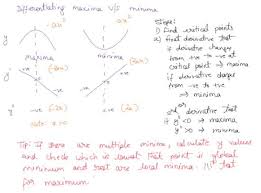 Differentiating maxima v/s minima
-ax²
+ax²
Steps:
1) find critical points
2) first derivative test
if derivative changes
from +ve to -ve at
critical point → maxima
if derivative changes
from -ve to +ve
→ minima
maxima
minima
(-2ax)
(2ax)
+ve
-ve
-ve
+ve
2nd derivative test
if y" < 0 → maxima
y" > 0 → minima
(-2a)
(2a)
Tip: If there are multiple minima, calculate y values
and check which is lowest. That point is global
minimum and rest are local minima.
for maximum.